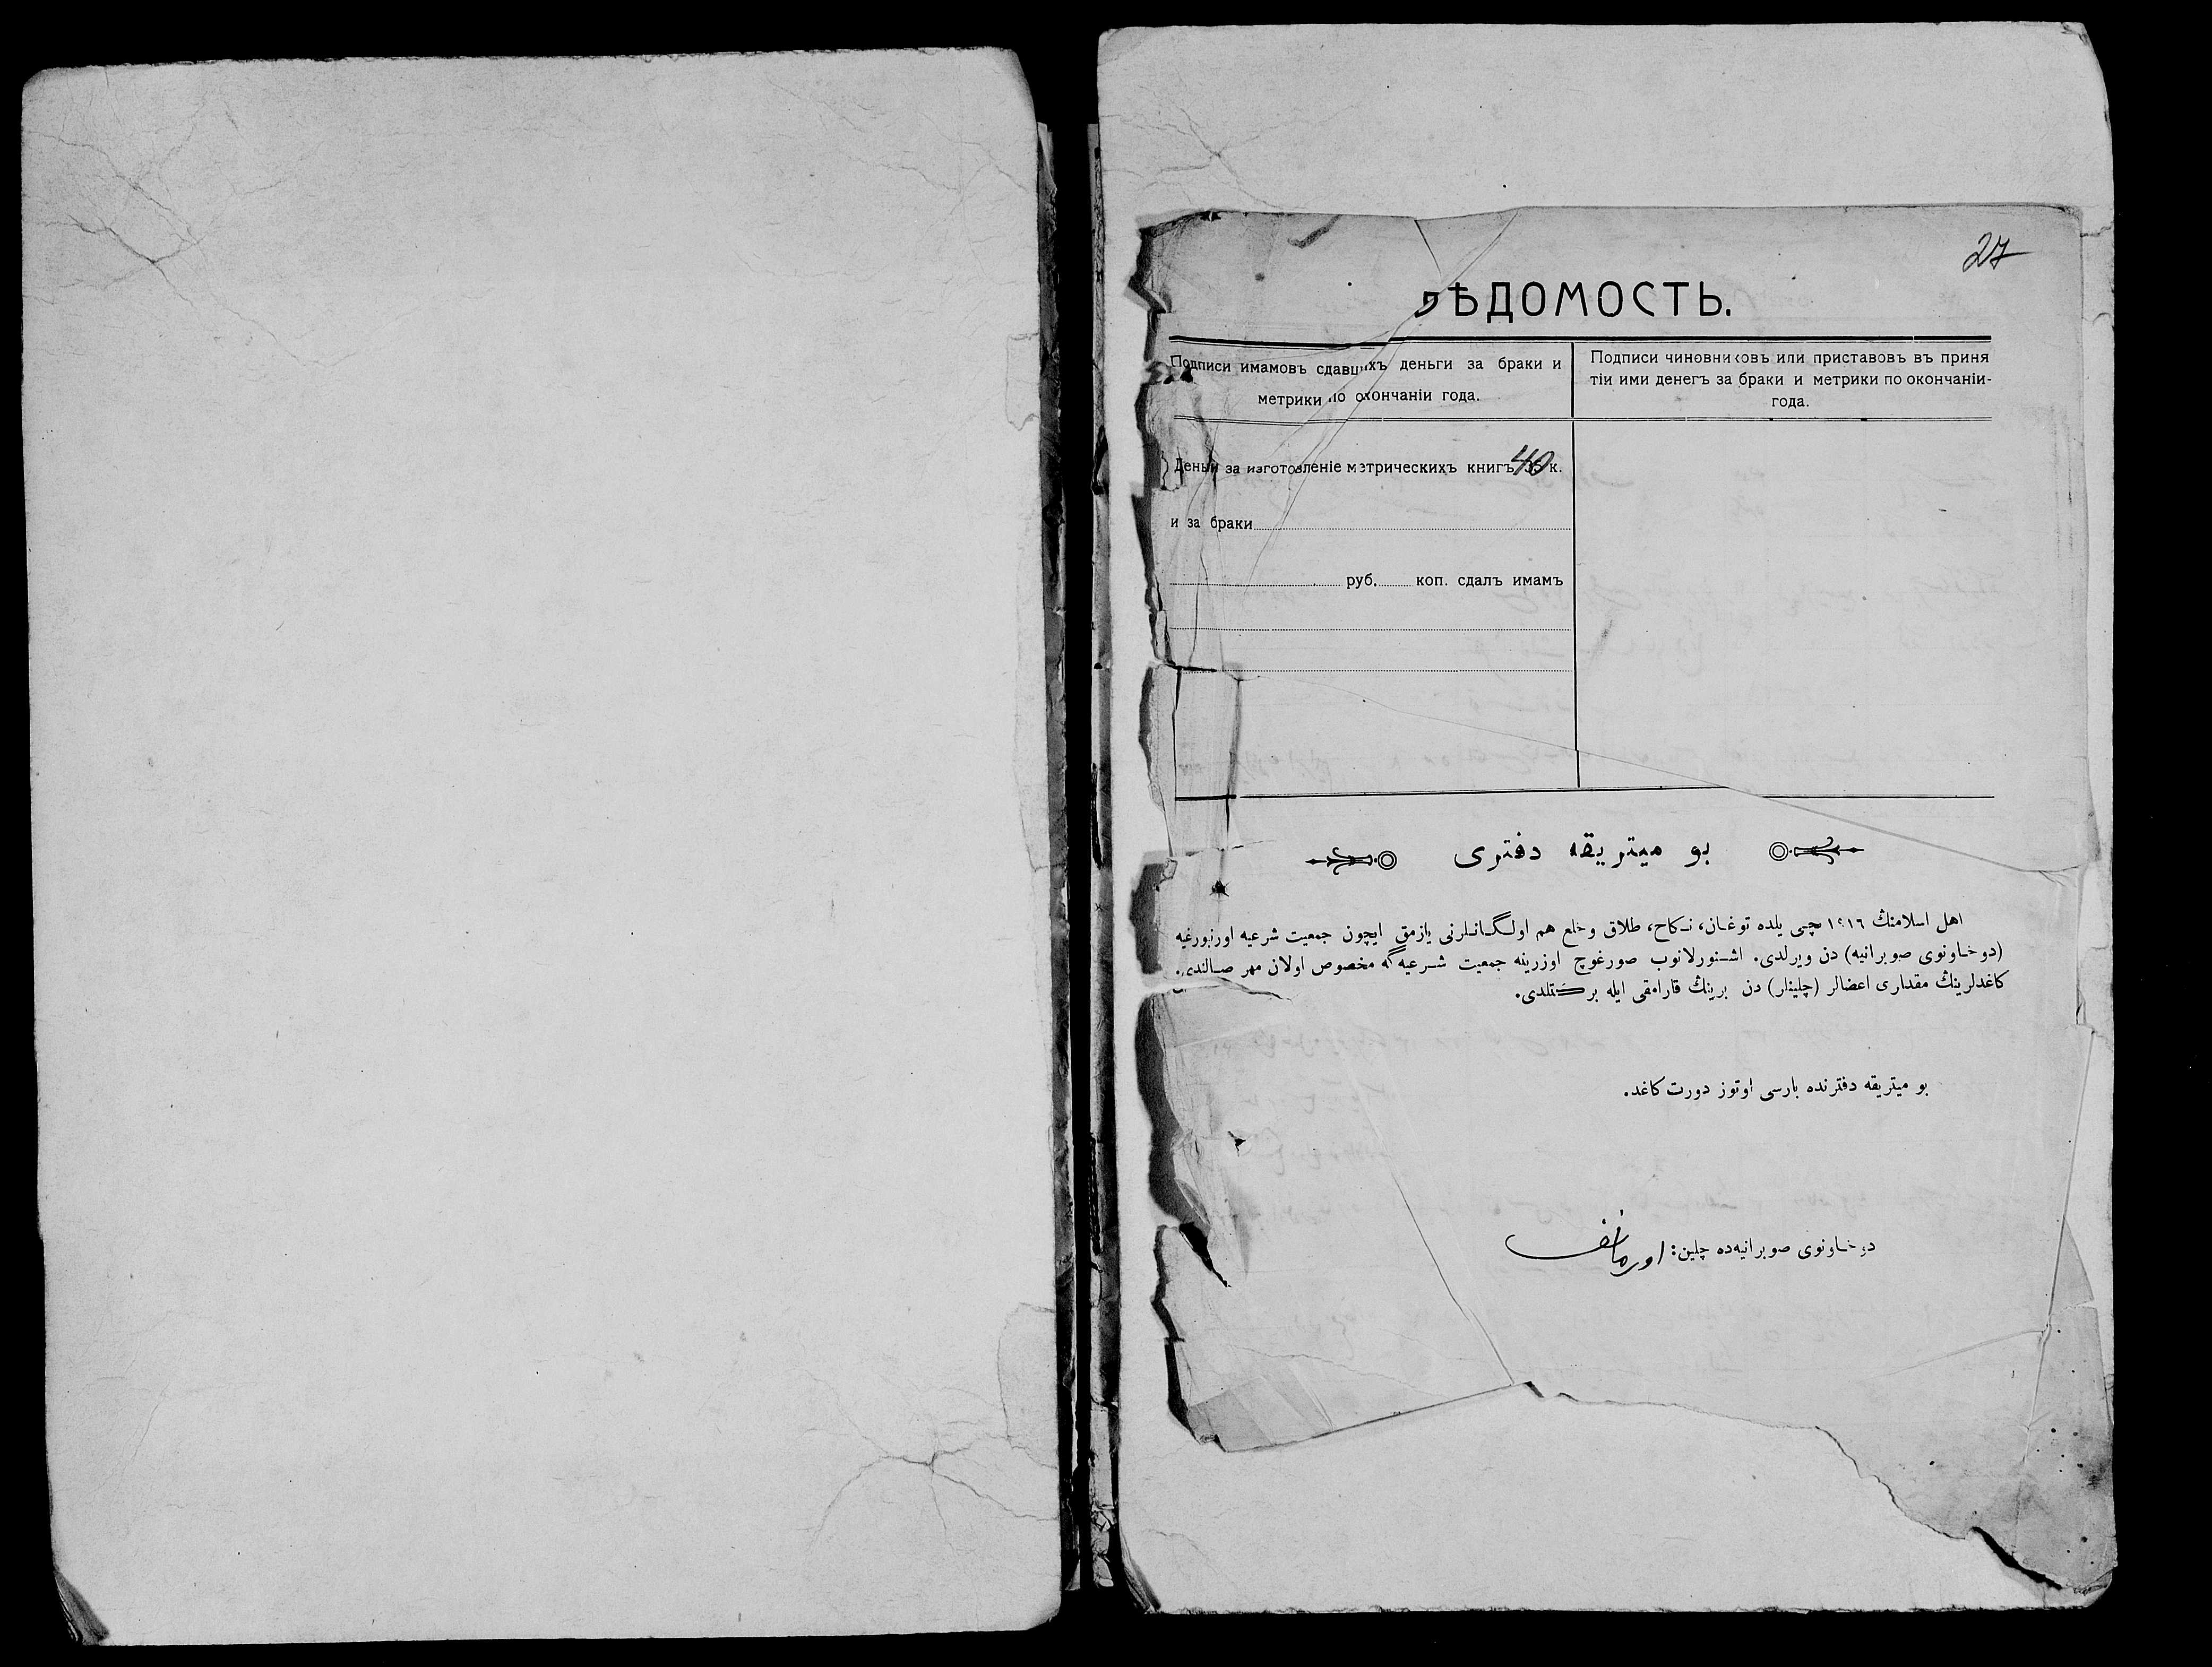 27
ВѢДОМОСТЬ.
Подписи имамовъ сдавшихъ деньги за браки и
метрики по окончаніи года.
Подписи чиновниковъ или приставовъ въ приня
тіи ими денегъ за браки и метрики по окончаніи-
года.
Деньги за изготовленіе метрическихъ книгъ 40 к.
и за браки
руб. коп. сдалъ имамъ
بو ميتريقه دفترى
اهل اسلامنڭ ١٩١٦ نچى يلده توغان، نكاح، طلاق وخلع هم اولگانلرنى يازمق ايچون جمعيت شرعيه اورنبورغيه
(دوخاونوى صوبرانيه) دن ويرلدى. اشنورلانوب صورغوچ اوزرينه جمعيت شرعيه‌گه مخصوص اولان مهر صالندى.
كاغدلرينڭ مقدارى اعضالر (چلينلر) دن برينڭ قارامقى ايله بركتلدى.
بو ميتريقه دفترنده بارسى اوتوز دورت كاغد.
دوخاونوى صوبرانيه‌ده چلين: